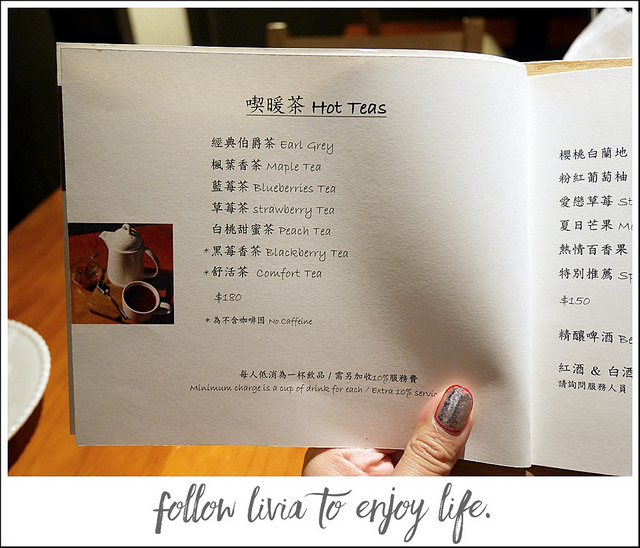 喫暖茶 Hot Teas
經典伯爵茶 Earl Grey
楓葉香茶 Maple Tea
藍莓茶 Blueberries Tea
草莓茶 strawberry Tea
白桃甜蜜茶 Peach Tea
*黑莓香茶 Blackberry Tea
*舒活茶 Comfort Tea
$180
*為不含咖啡因 No Caffeine
每人低消為一杯飲品 / 需另加收10%服務費
Minimum charge is a cup of drink for each / Extra 10% servi
櫻桃白蘭地
粉紅葡萄柚
愛戀草莓 St
夏日芒果 M
熱情百香果
特別推薦 Sp
$150
精釀啤酒 Be
紅酒 & 白酒
請詢問服務人員
follow livia to enjoy life.